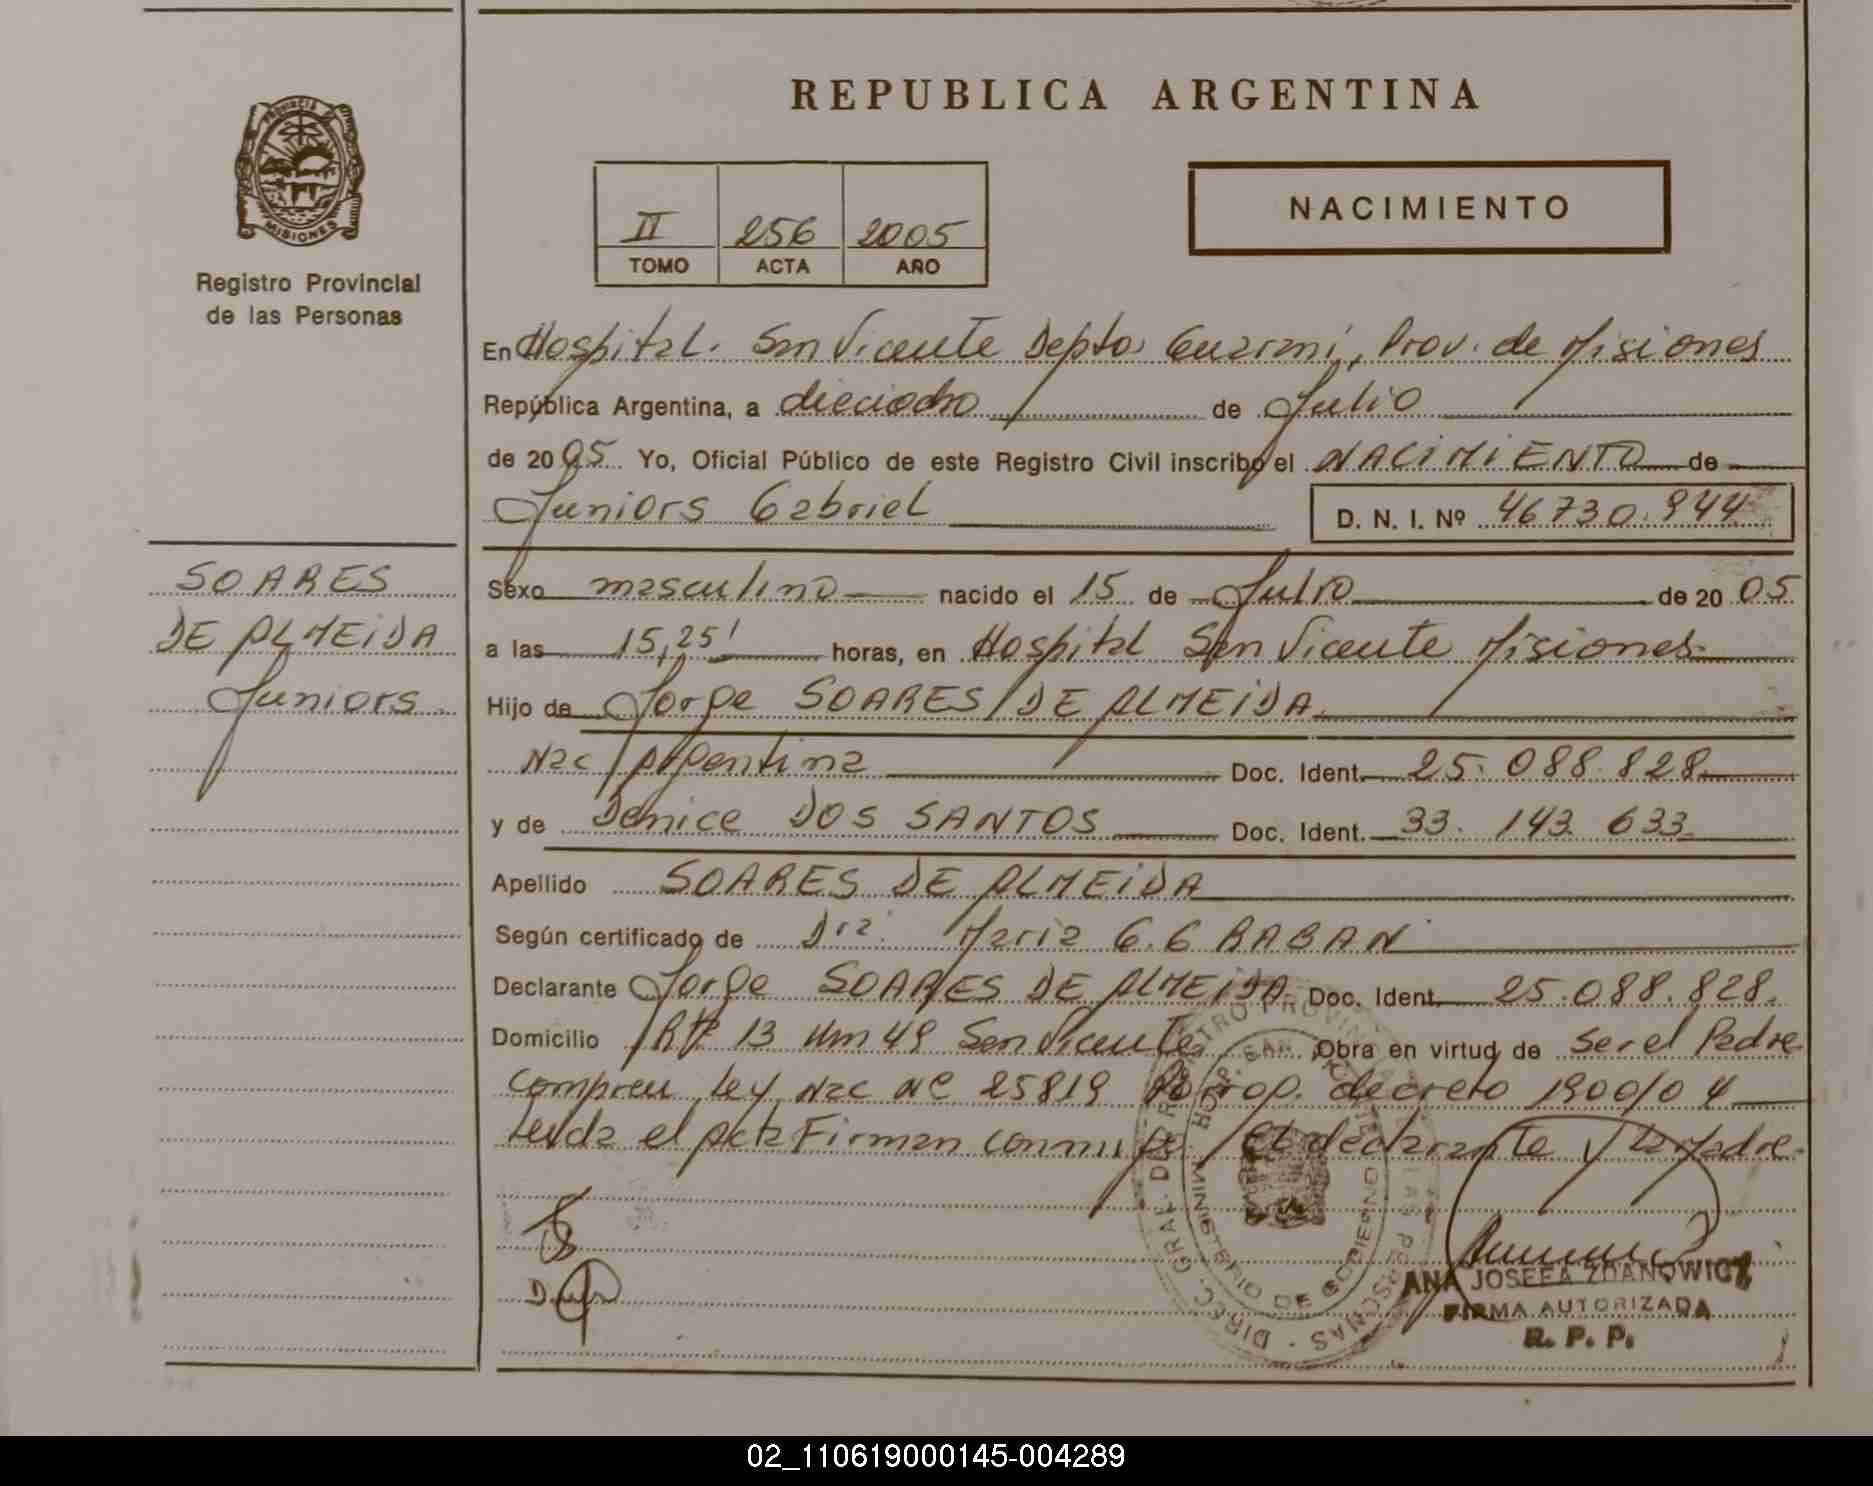 REPUBLICA ARGENTINA
PROVINCIA
MISIONES
Registro Provincial
de las Personas
II 256 2005
TOMO ACTA AÑO
NACIMIENTO
En Hospital. San Vicente Depto Guarani, Prov. de Misiones
República Argentina, a dieciocho de Julio
de 2005 Yo, Oficial Público de este Registro Civil inscribo el NACIMIENTO de
Juniors Gabriel D. N. I. Nº 46730.944
SOARES
DE ALMEIDA
Juniors
Sexo masculino nacido el 15 de Julio de 2005
a las 15,25' horas, en Hospital San Vicente Misiones
Hijo de Jorge SOARES DE ALMEIDA
Nac Argentina Doc. Ident. 25.088.828
y de Denice DOS SANTOS Doc. Ident. 33. 143 633
Apellido SOARES DE ALMEIDA
Según certificado de Dra. Maria G. G RABAN
Declarante Jorge SOARES DE ALMEIDA Doc. Ident. 25.088.828.
Domicilio Rta 13 Km 49 San Vicente Obra en virtud de Ser el Padre
Ley Nac Nº 25819 decreto 1900/04
Leida el acta Firman conmigo El declarante y La Madre.
DIREC. GRAL. DE REGISTRO PROVINCIAL DE LAS PERSONAS
MINISTERIO DE GOBIERNO
ANA JOSEFA ZDANOWICZ
FIRMA AUTORIZADA
R. P. P.
02_110619000145-004289